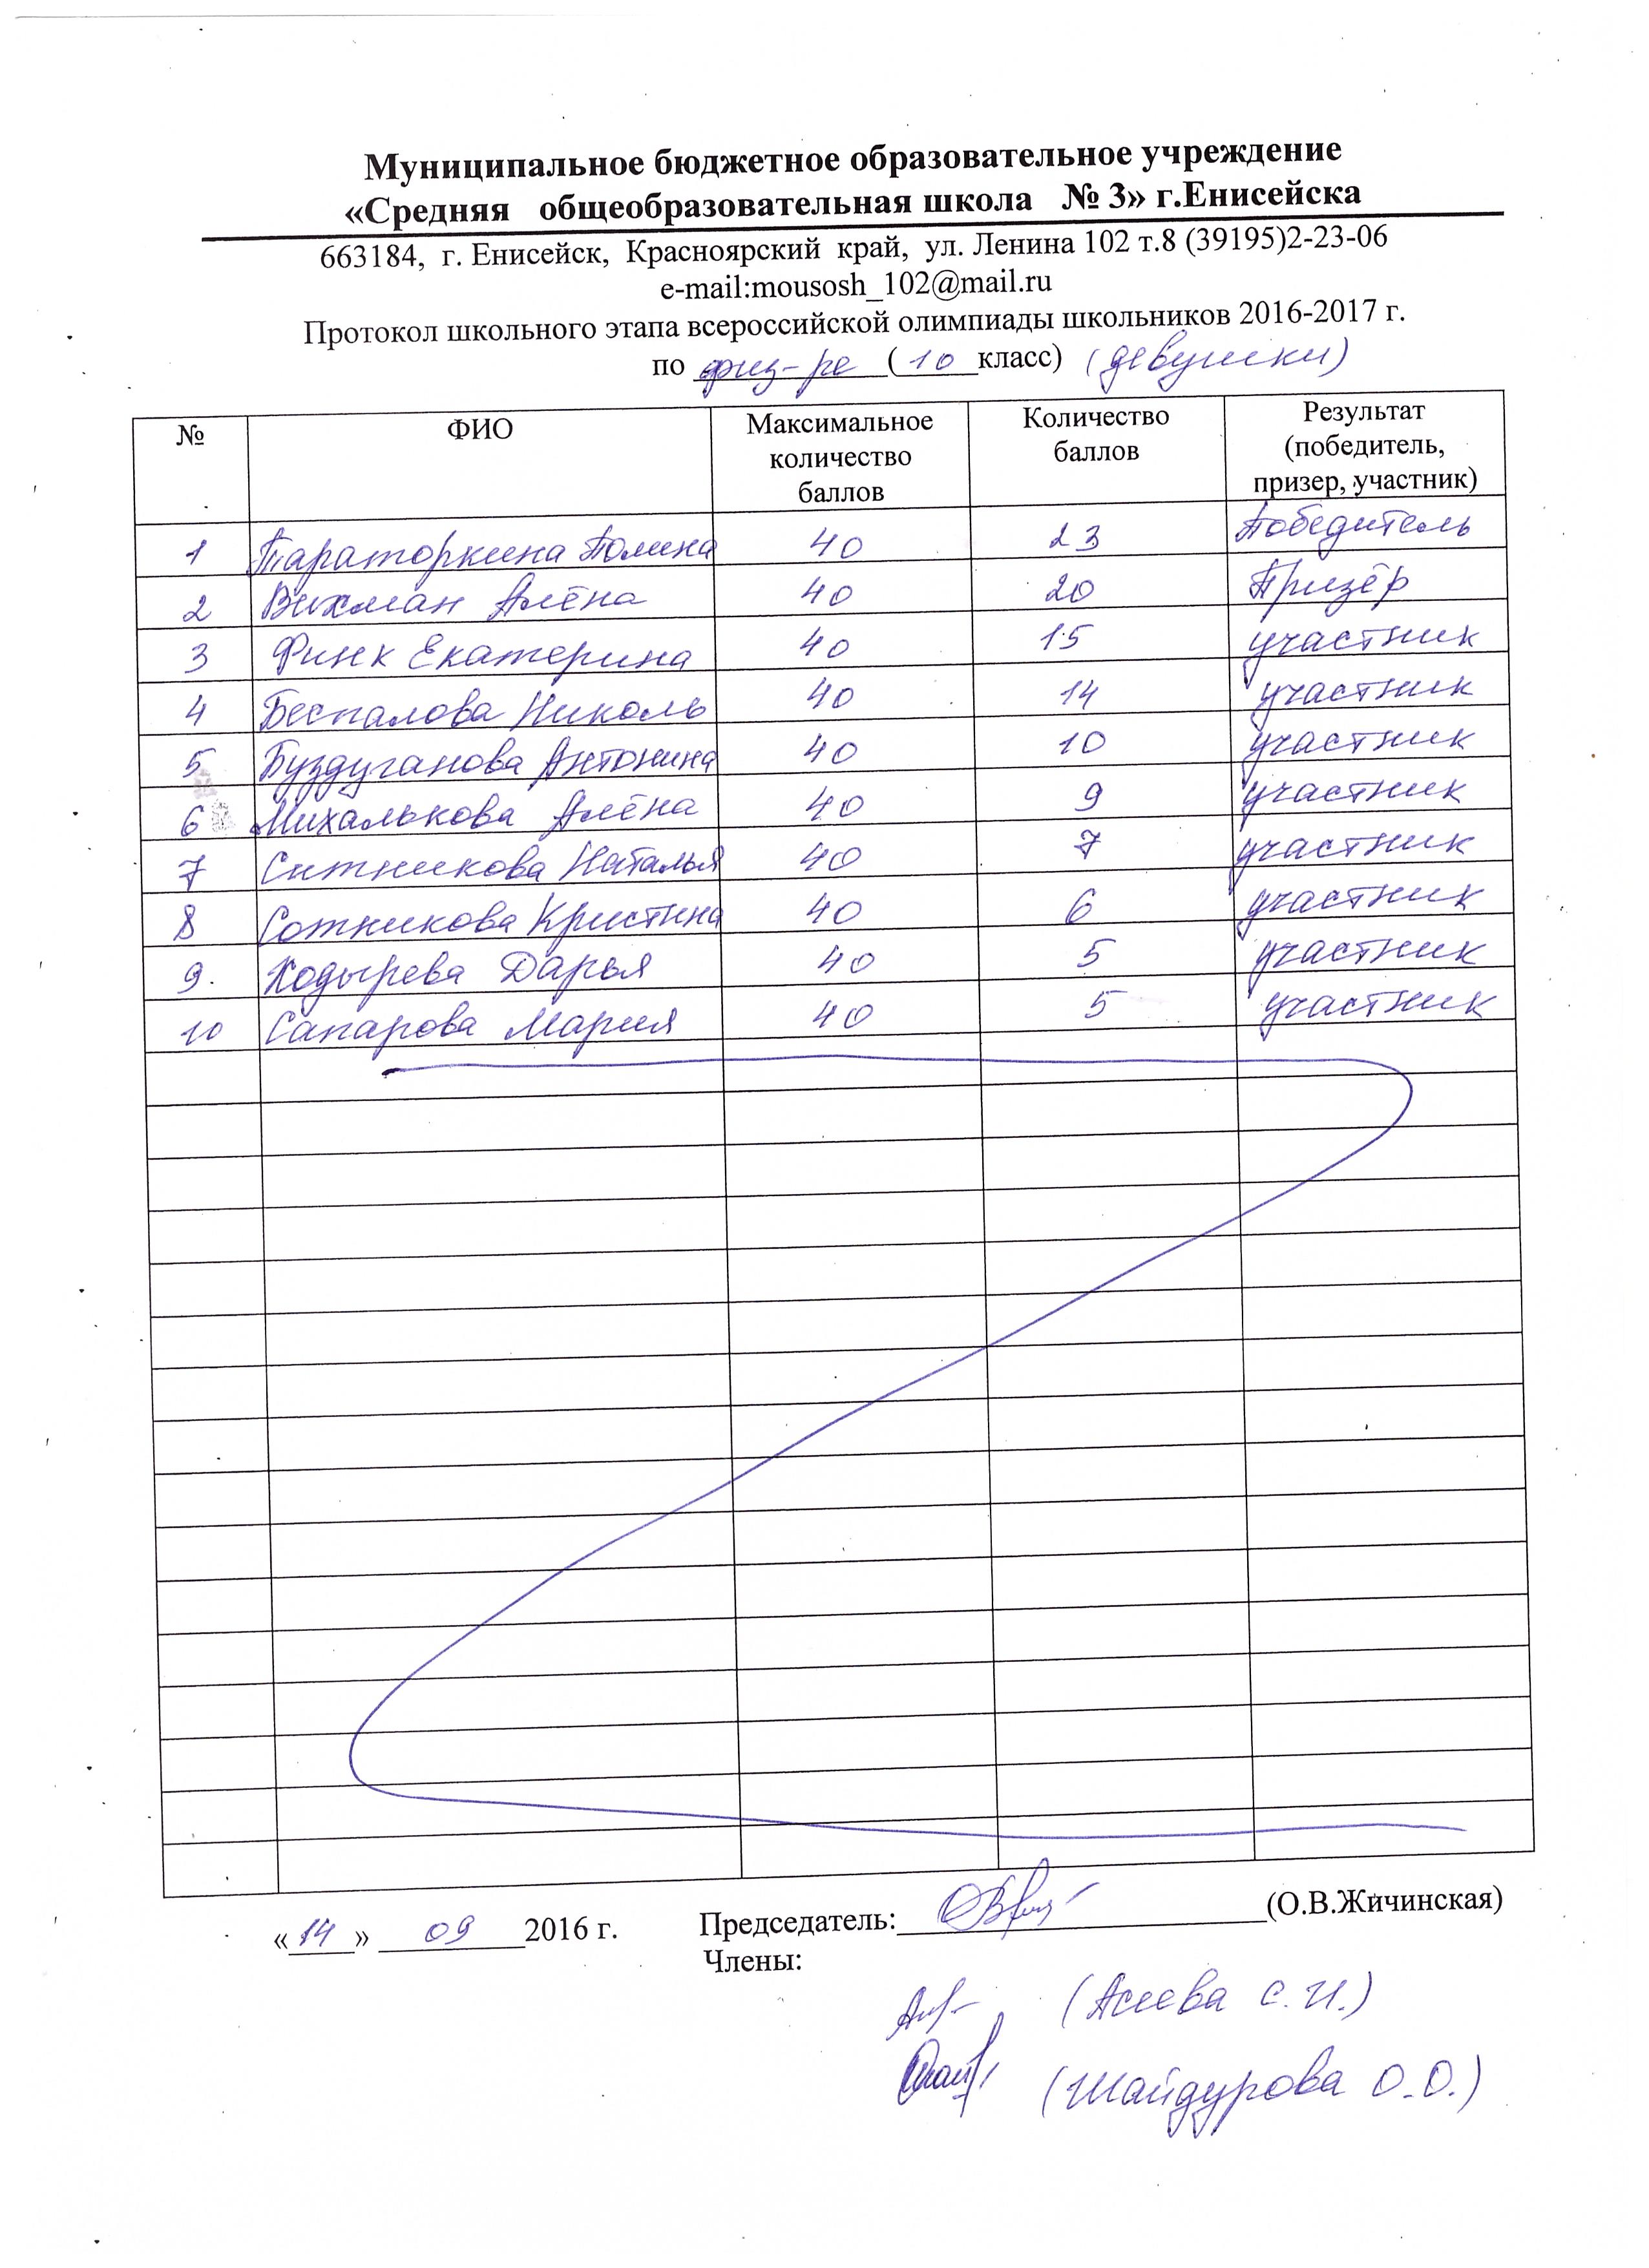 Муниципальное бюджетное образовательное учреждение
«Средняя общеобразовательная школа № 3» г.Енисейска
663184, г. Енисейск, Красноярский край, ул. Ленина 102 т.8 (39195)2-23-06
e-mail:mousosh_102@mail.ru
Протокол школьного этапа всероссийской олимпиады школьников 2016-2017 г.
по физ-ре (10 класс) (девушки)
№ ФИО Максимальное количество баллов Количество баллов Результат (победитель, призер, участник)
1 Тараторкина Полина 40 23 Победитель
2 Вихман Алёна 40 20 Призёр
3 Финк Екатерина 40 15 участник
4 Беспалова Николь 40 14 участник
5 Буздуганова Антонина 40 10 участник
6 Михалькова Алёна 40 9 участник
7 Ситникова Наталья 40 7 участник
8 Сотникова Кристина 40 6 участник
9. Ходырева Дарья 40 5 участник
10 Сапарова Мария 40 5 участник
«14» 09 2016 г. Председатель: (О.В.Жичинская)
Члены:
(Асеева С.И.)
(Шайдурова О.О.)